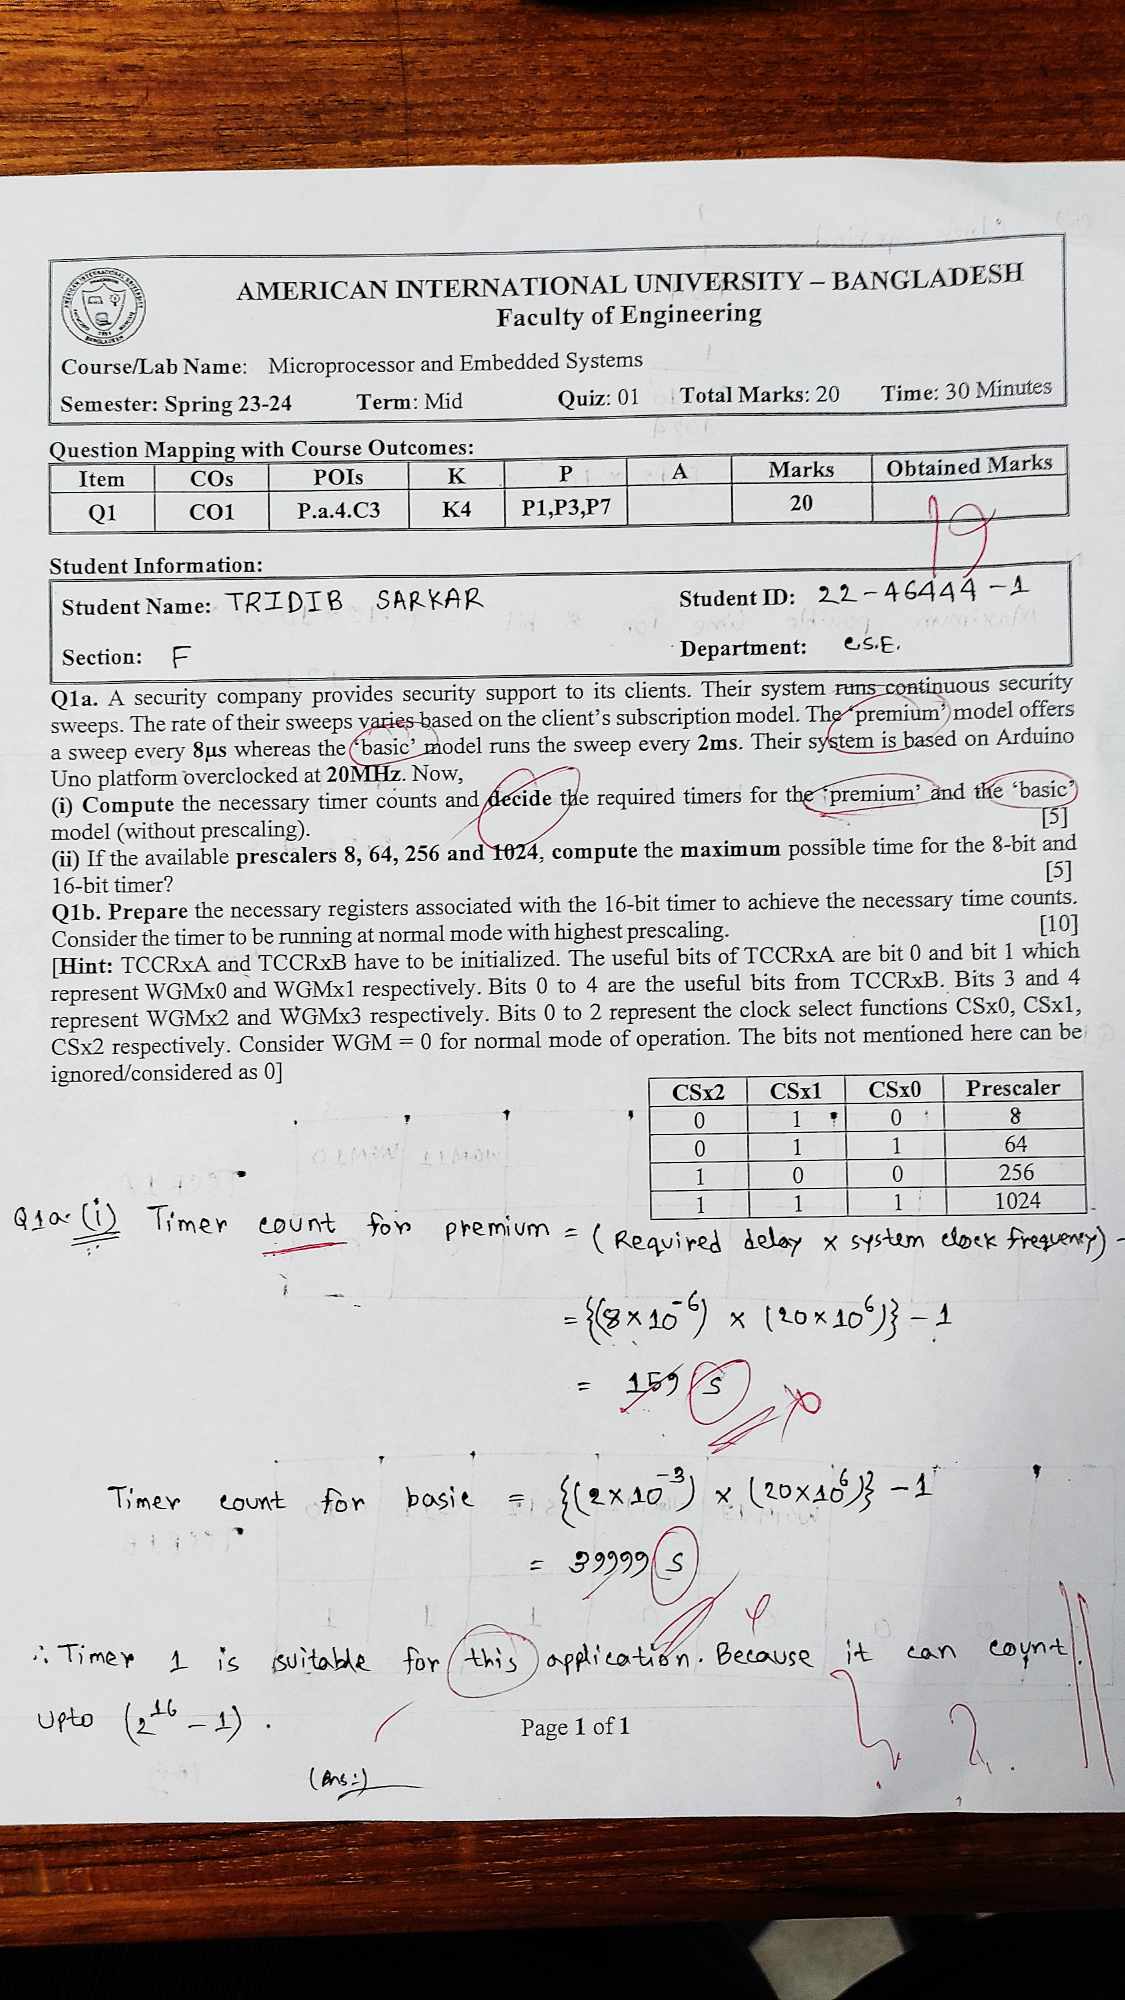 AMERICAN INTERNATIONAL UNIVERSITY – BANGLADESH
Faculty of Engineering
Course/Lab Name: Microprocessor and Embedded Systems
Semester: Spring 23-24 Term: Mid Quiz: 01 Total Marks: 20 Time: 30 Minutes
Question Mapping with Course Outcomes:
Item COs POIs K P A Marks Obtained Marks
Q1 CO1 P.a.4.C3 K4 P1,P3,P7 20
Student Information:
Student Name: TRIDIB SARKAR Student ID: 22-46444-1
Section: F Department: C.S.E.
Q1a. A security company provides security support to its clients. Their system runs continuous security
sweeps. The rate of their sweeps varies based on the client's subscription model. The 'premium' model offers
a sweep every 8µs whereas the 'basic' model runs the sweep every 2ms. Their system is based on Arduino
Uno platform overclocked at 20MHz. Now,
(i) Compute the necessary timer counts and decide the required timers for the 'premium' and the 'basic'
model (without prescaling). [5]
(ii) If the available prescalers 8, 64, 256 and 1024, compute the maximum possible time for the 8-bit and
16-bit timer? [5]
Q1b. Prepare the necessary registers associated with the 16-bit timer to achieve the necessary time counts.
Consider the timer to be running at normal mode with highest prescaling. [10]
[Hint: TCCRxA and TCCRxB have to be initialized. The useful bits of TCCRxA are bit 0 and bit 1 which
represent WGMx0 and WGMx1 respectively. Bits 0 to 4 are the useful bits from TCCRxB. Bits 3 and 4
represent WGMx2 and WGMx3 respectively. Bits 0 to 2 represent the clock select functions CSx0, CSx1,
CSx2 respectively. Consider WGM = 0 for normal mode of operation. The bits not mentioned here can be
ignored/considered as 0]
CSx2 CSx1 CSx0 Prescaler
0 1 0 8
0 1 1 64
1 0 0 256
1 1 1 1024
Q1a. (i) Timer count for premium = (Required delay x system clock frequency) -
= {(8×10⁻⁶) x (20×10⁶)} - 1
= 159 s
Timer count for basic = {(2×10⁻³) x (20×10⁶)} - 1
= 39999 s
∴ Timer 1 is suitable for this application. Because it can count
upto (2¹⁶ - 1).
Page 1 of 1
(Ans:)